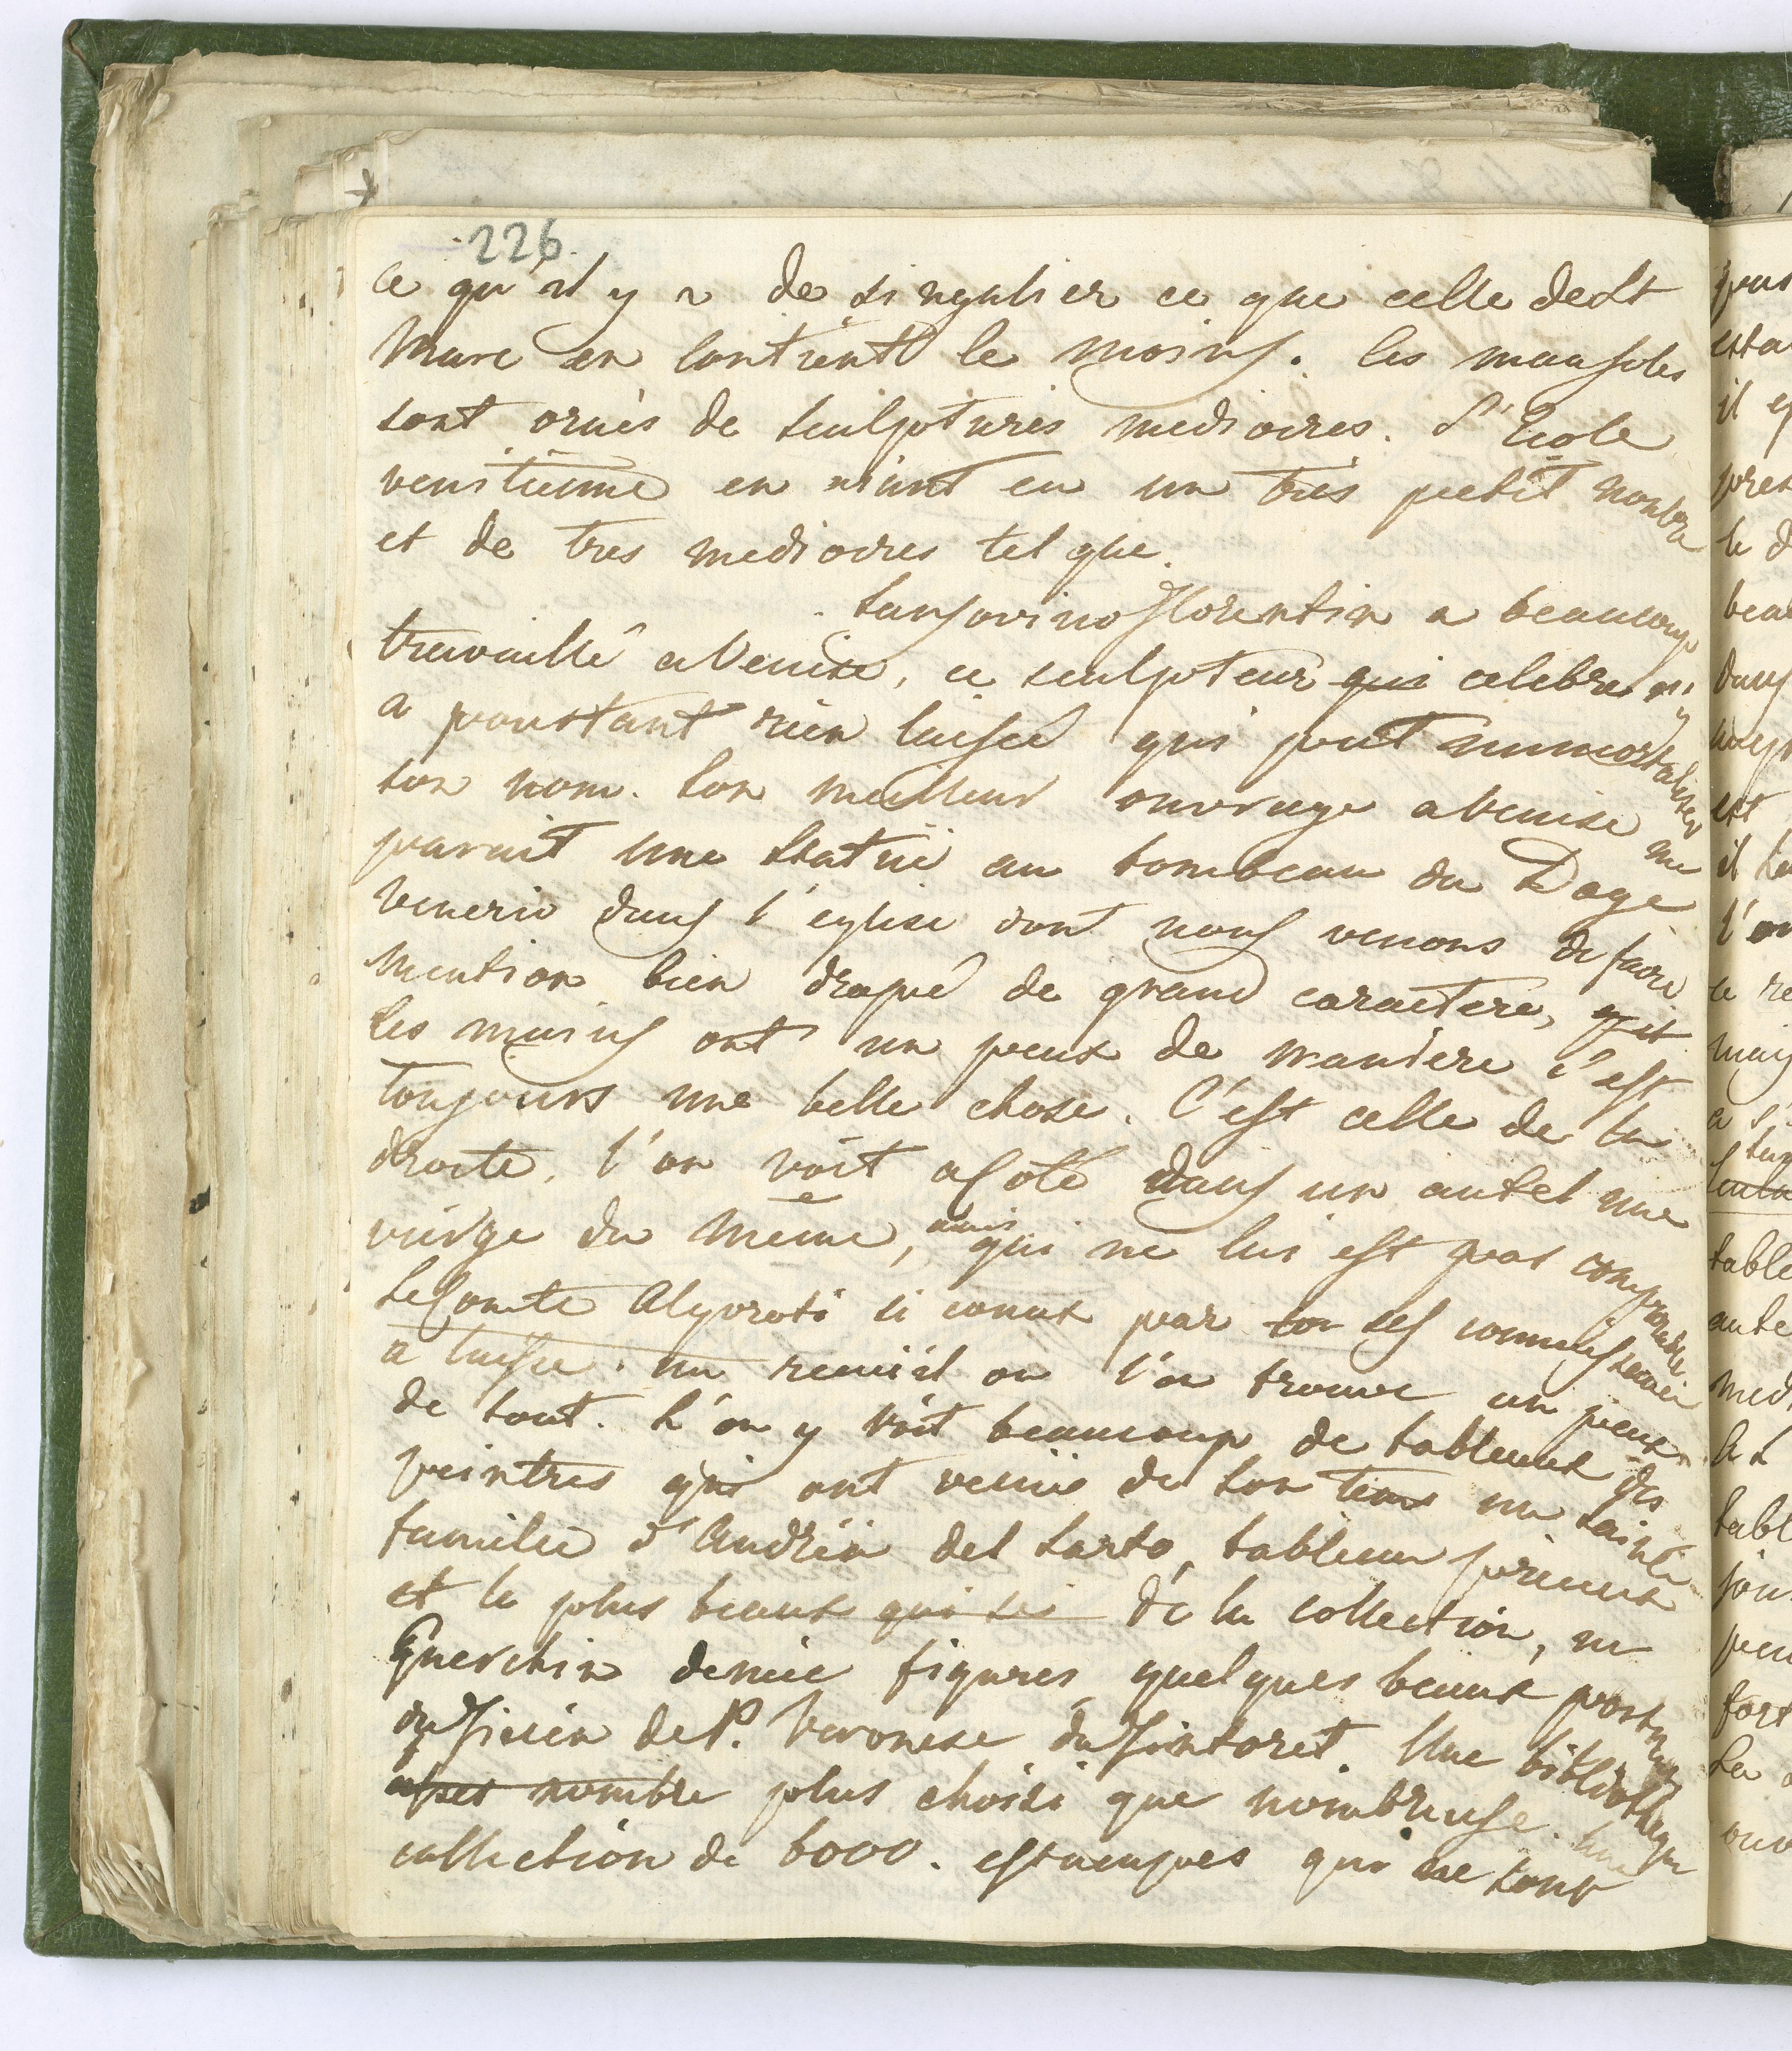 226.
ce qu'il y a de singulier ce que celle de St
Marc en contient le moins. les mausoles
sont ornés de sculptures mediocres. L'Ecole
venitienne en aiant eu un très petit nombre
et de tres mediocres tel que.
Sansovino florentin a beaucoup
travaillé a Venise, ce sculpteur qui celebre n'y
a pourtant rien laissé qui peut immortaliser
son nom. Son meilleur ouvrage a Venise me
parait une Statue au tombeau du Doge
Venerio dans l'eglise dont nous venons de faire
mention bien drapé de grand caractere,
les mains ont un peux de maniere c'est
toujours une belle chose. C'est celle de la
droite. l'on voit a coté dans un autel une
vierge du même, mais qui ne lui est pas comparable
Le Comte Algaroti si conut par son ses connaissances
a laisse. un reccüil ou l'on trouve un peux
de tout. L'on y voit beaucoup de tableaux des
peintres qui ont vecüe de son tems une sainte
familie d'Andrëa del Sarto, tableau princip
et le plus beaux qui soi de la collection, un
Guerchin demie figures, quelques beaux portraits
du Ticien de P. Veronese du Tintoret. Une bibliotheque
asses nombre plus choisi que nombreuse. Une
collection de 6000. estampes qui ne sont